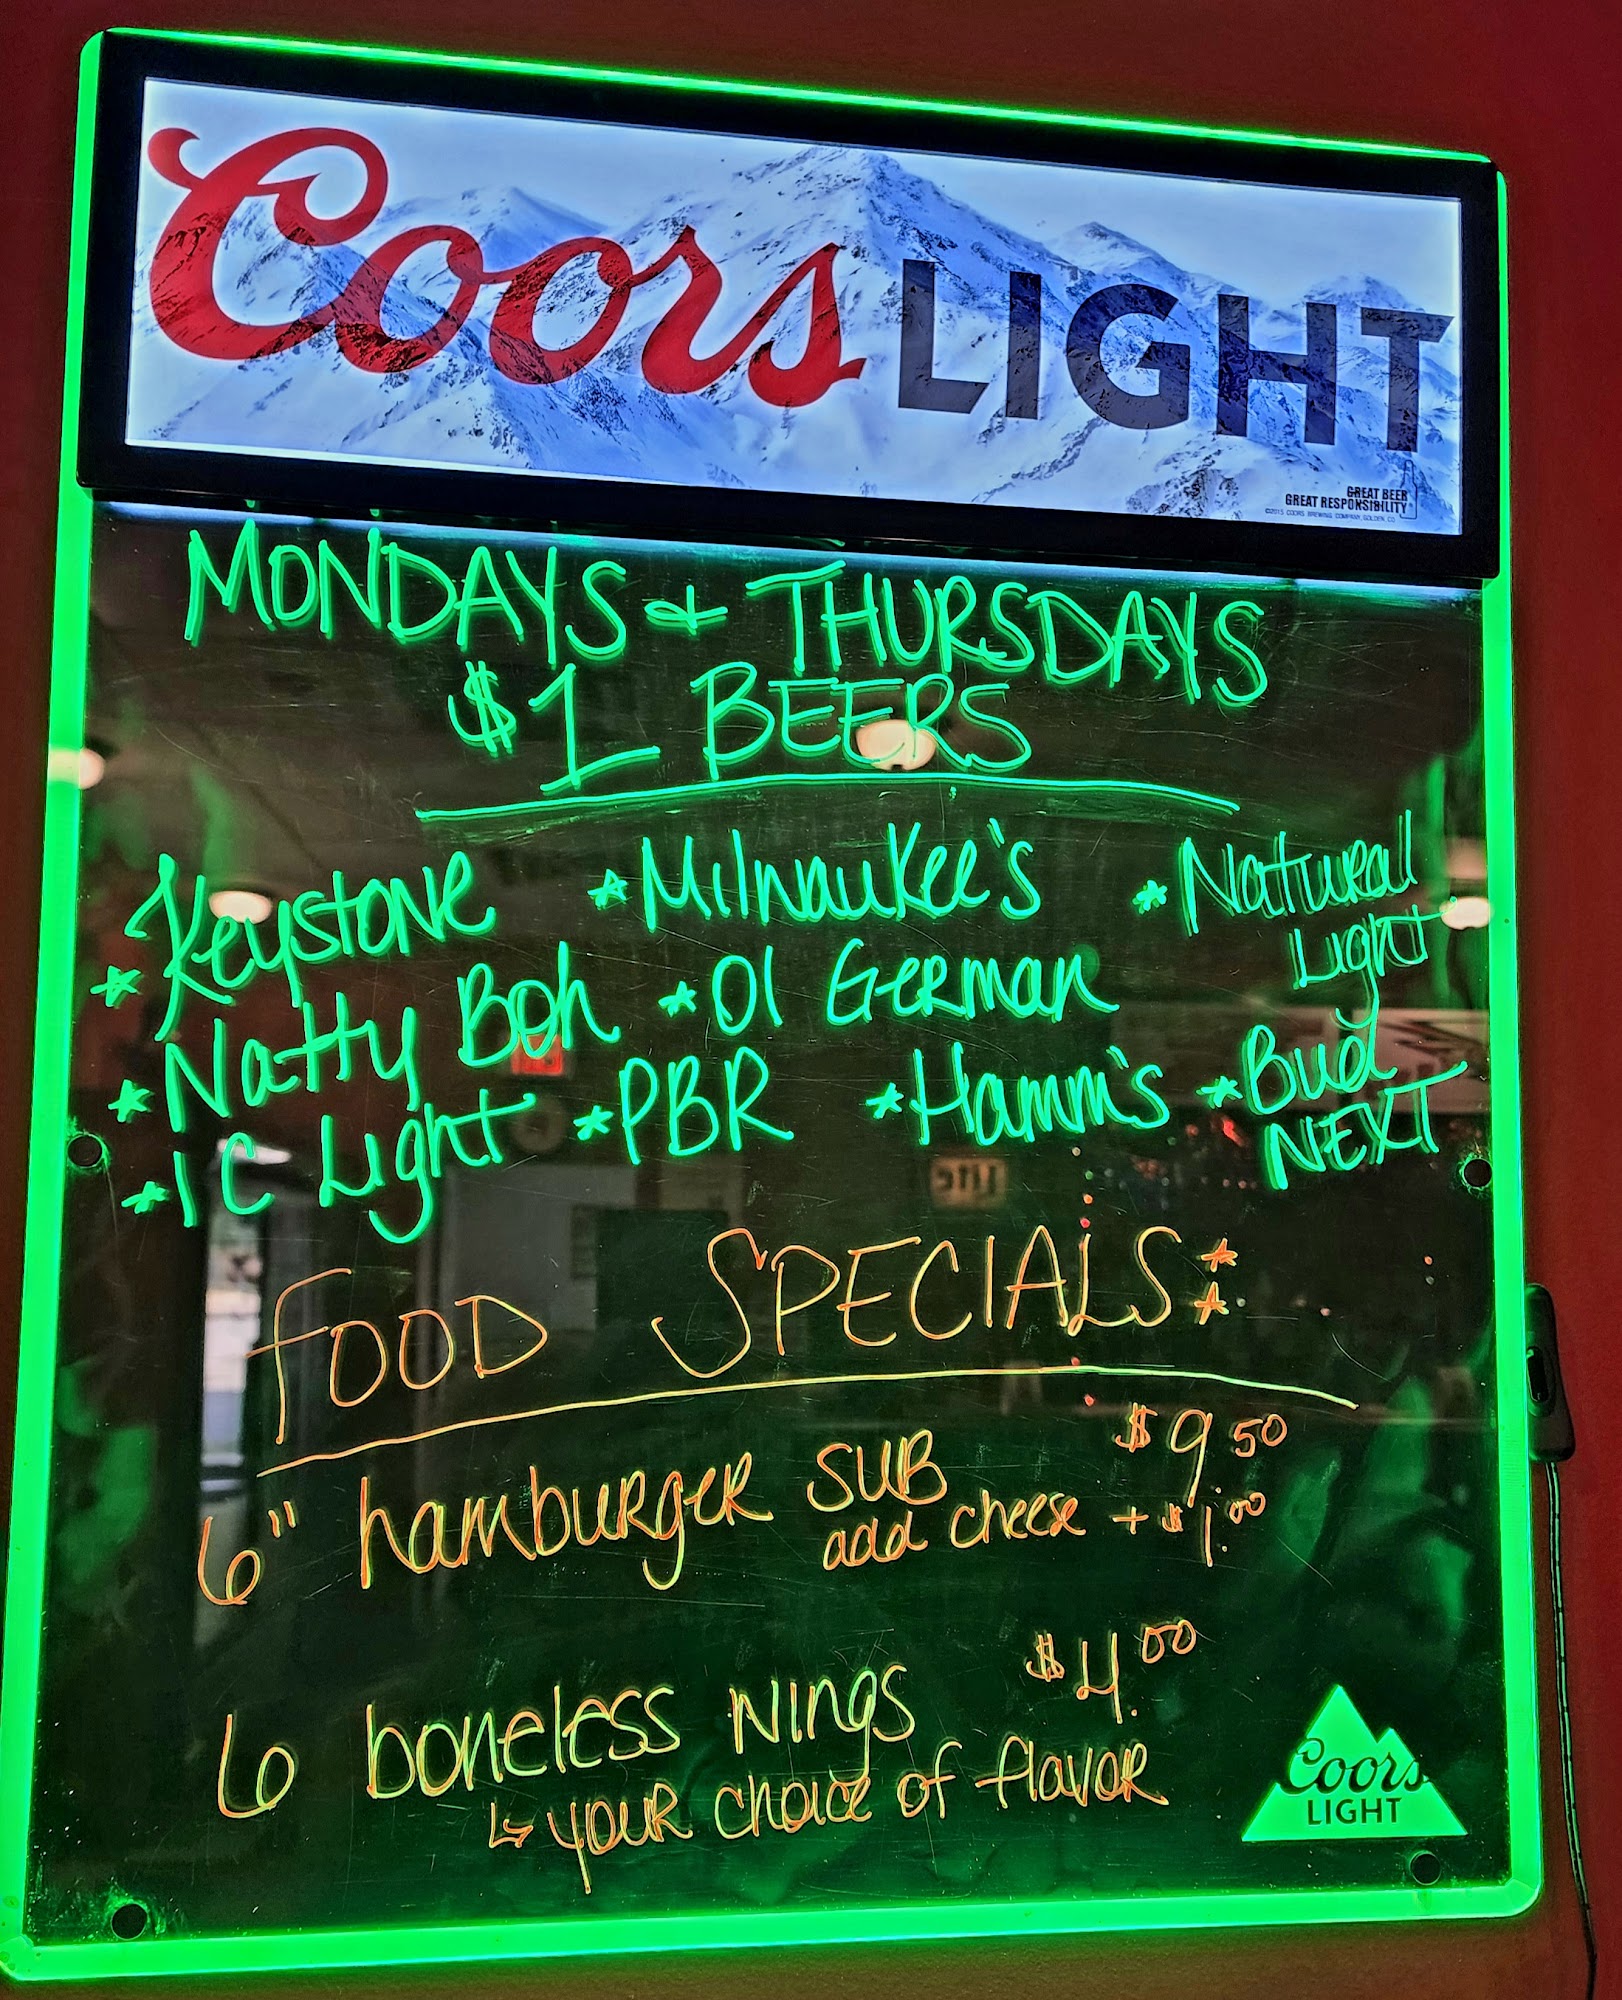 Coors LIGHT
GREAT BEER
GREAT RESPONSIBILITY
©2015 COORS BREWING COMPANY, GOLDEN, CO
MONDAYS + THURSDAYS
$1 BEERS
* Keystone * Milwaukee's * Natural Light
* Natty Boh * Ol German
* I C Light * PBR * Hamm's * Bud NEXT
FOOD SPECIALS:
6" hamburger SUB $9.50
add cheese + $1.00
6 boneless wings $4.00
↳ your choice of flavor
Coors
LIGHT